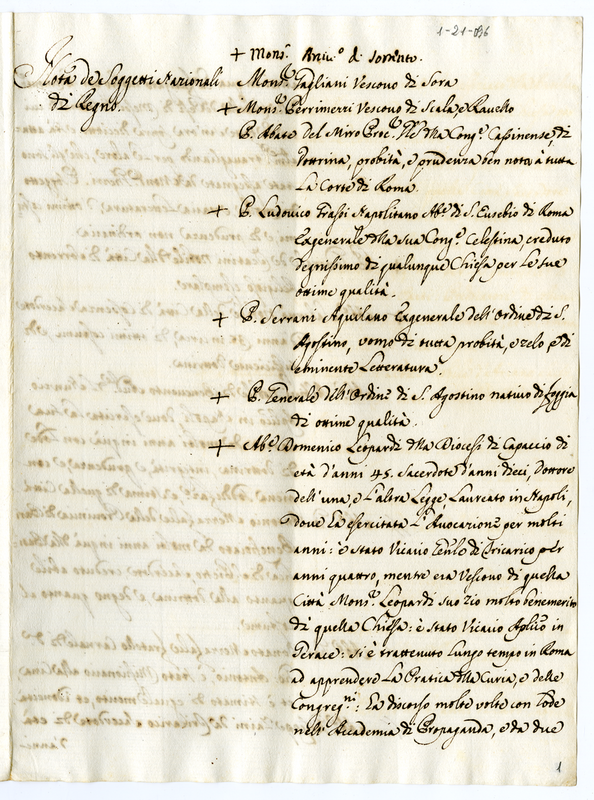 1-21-096
+ Mons.r Arciv.o di Sorrento.
Nota de Soggetti Nazionali
di Regno.
Mons.r Gagliani Vescovo di Sora
+ Mons.r Perrimezzi Vescovo di Scala, e Ravello
P. Abate del Miro Proc.r Gle della Cong.e Casinense, di
Dottrina, probità, e prudenza ben nota à tutta
La Corte di Roma.
+ P. Ludovico Grassi Napolitano Ab.e di S. Eusebio di Roma
Exgenerale della sua Cong.e Celestina, creduto
degnissimo di qualunque Chiesa per le sue
ottime qualità.
+ P. Serrani Aquilano Exgenerale dell'Ordine di S.
Agostino, uomo di tutta probità, e zelo e di
eminente Letteratura.
+ P. Generale dell'Ordine di S. Agostino nativo di Foggia
di ottime qualità.
+ Ab.e Domenico Leopardi della Diocesi di Capaccio di
età d'anni 45. Sacerdote d'anni dieci, Dottore
dell'una, e L'altra Legge, Laureato in Napoli,
dove ha esercitata L'Avocazione per molti
anni: è stato Vicario Gen.le di Tricarico per
anni quattro, mentre era Vescovo di quella
Città Mons.r Leopardi suo zio molto benemerito
di quella Chiesa: è stato Vicario Aplico in
Gerace: si è trattenuto lungo tempo in Roma
ad apprendere La Pratica della Curia, e delle
Congreg.ni: Ha discorso molte volte con lode
nell'Accademia di Propaganda, e da due
1